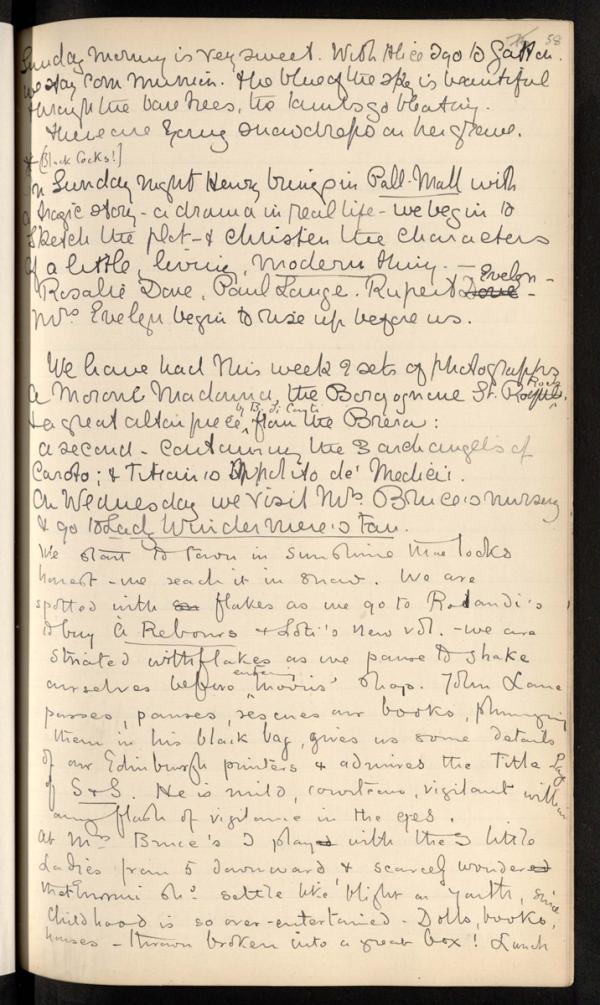 58
Sunday Morning is very sweet. With Alice I go to Gatton.
we stay Com Munion. the blue of the sky is beautiful
through the bare trees, the lambs go bleating.
There are young snowdrops on her grave.
+ (Black Cocks!]
On Sunday night Henry brings in Pall-Mall with
a tragic story - a drama in real life - we begin to
sketch the plot - & christen the characters
of a little, living, modern thing. -
Rosalie Dove, Paul Lange. Rupert Dove Evelyn -
Mrs Evelyn begin to rise up before us.
We have had this week 2 sets of photographs
a Moroni Madonna, the Borgognone St. Roch,
& a great altar piece by B. di Conti from the Brera:
a second - containing the 3 archangels of
Caroto; & Titian's Ippolito de' Medici.
On Wednesday we visit Mrs. Bruce's nursery
& go to Lady Windermere's Fan.
We start to town in sunshine that looks
honest - we reach it in snow. We are
spotted with flakes as we go to Rolandi's
to buy À Rebours & Loti's new vol. - we are
striated with flakes as we pause to shake
ourselves before entering shop. John Lane
passes, pauses, rescues our books, plunging
them in his black bag, gives us some details
of our Edinburgh printers & admires the Title Page
of S & S. He is mild, courteous, vigilant without
any flash of vigilance in the eyes.
At Mrs Bruce's I played with the 3 little
Ladies from 5 downward & scarcely wondered
that ennui shd. settle like blight on youth, since
childhood is so over-entertained - Dolls, books,
houses - thrown broken into a great box! Lunch